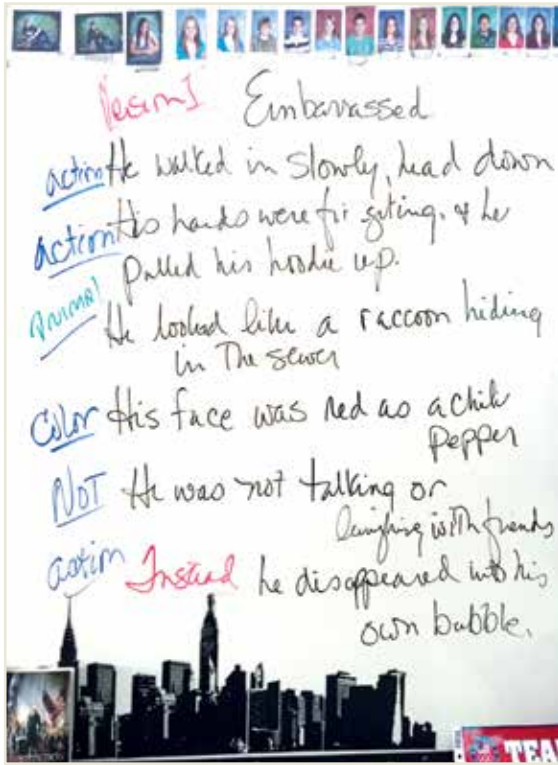 Version 1 Embarrassed
action He walked in slowly, head down
action His hands were fir geting. & he
pulled his hoodie up.
Animal He looked like a raccoon hiding
in The sewer
Color His face was red as a chili
pepper
NOT He was not talking or
laughing with friends
action Instead he disappeared into his
own bubble.
TEA